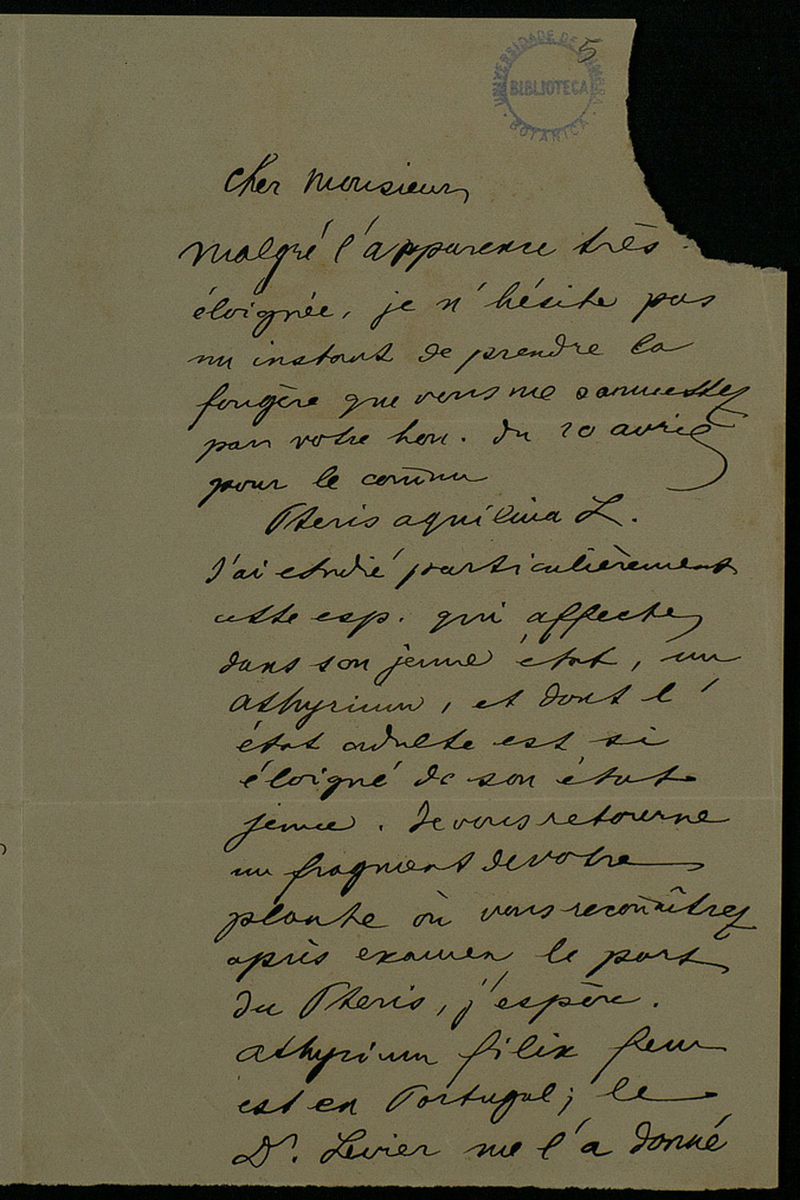 5
UNIVERSIDADE DE COIMBRA
BIBLIOTECA
BOTANICA
Cher Monsieur,
Malgré l'apparence très
éloignée, je n'hésite pas
un instant de prendre la
fougère que vous me soumettez
par votre hon. du 20 avril
pour le com̄un
Pteris aquilina L.
J'ai etudié particulièrement
cette esp. qui affecte,
dans son jeune état, un
Athyrium, et dont l'
état adulte est si
éloigné de son état
jeune. Je vous retourne
un fragment de votre
plante où vous recoñaîtrez
après examen le port
du Pteris, j'espère.
Athyrium filix fem
est en Portugal; le
Dr. Levier me l'a donné